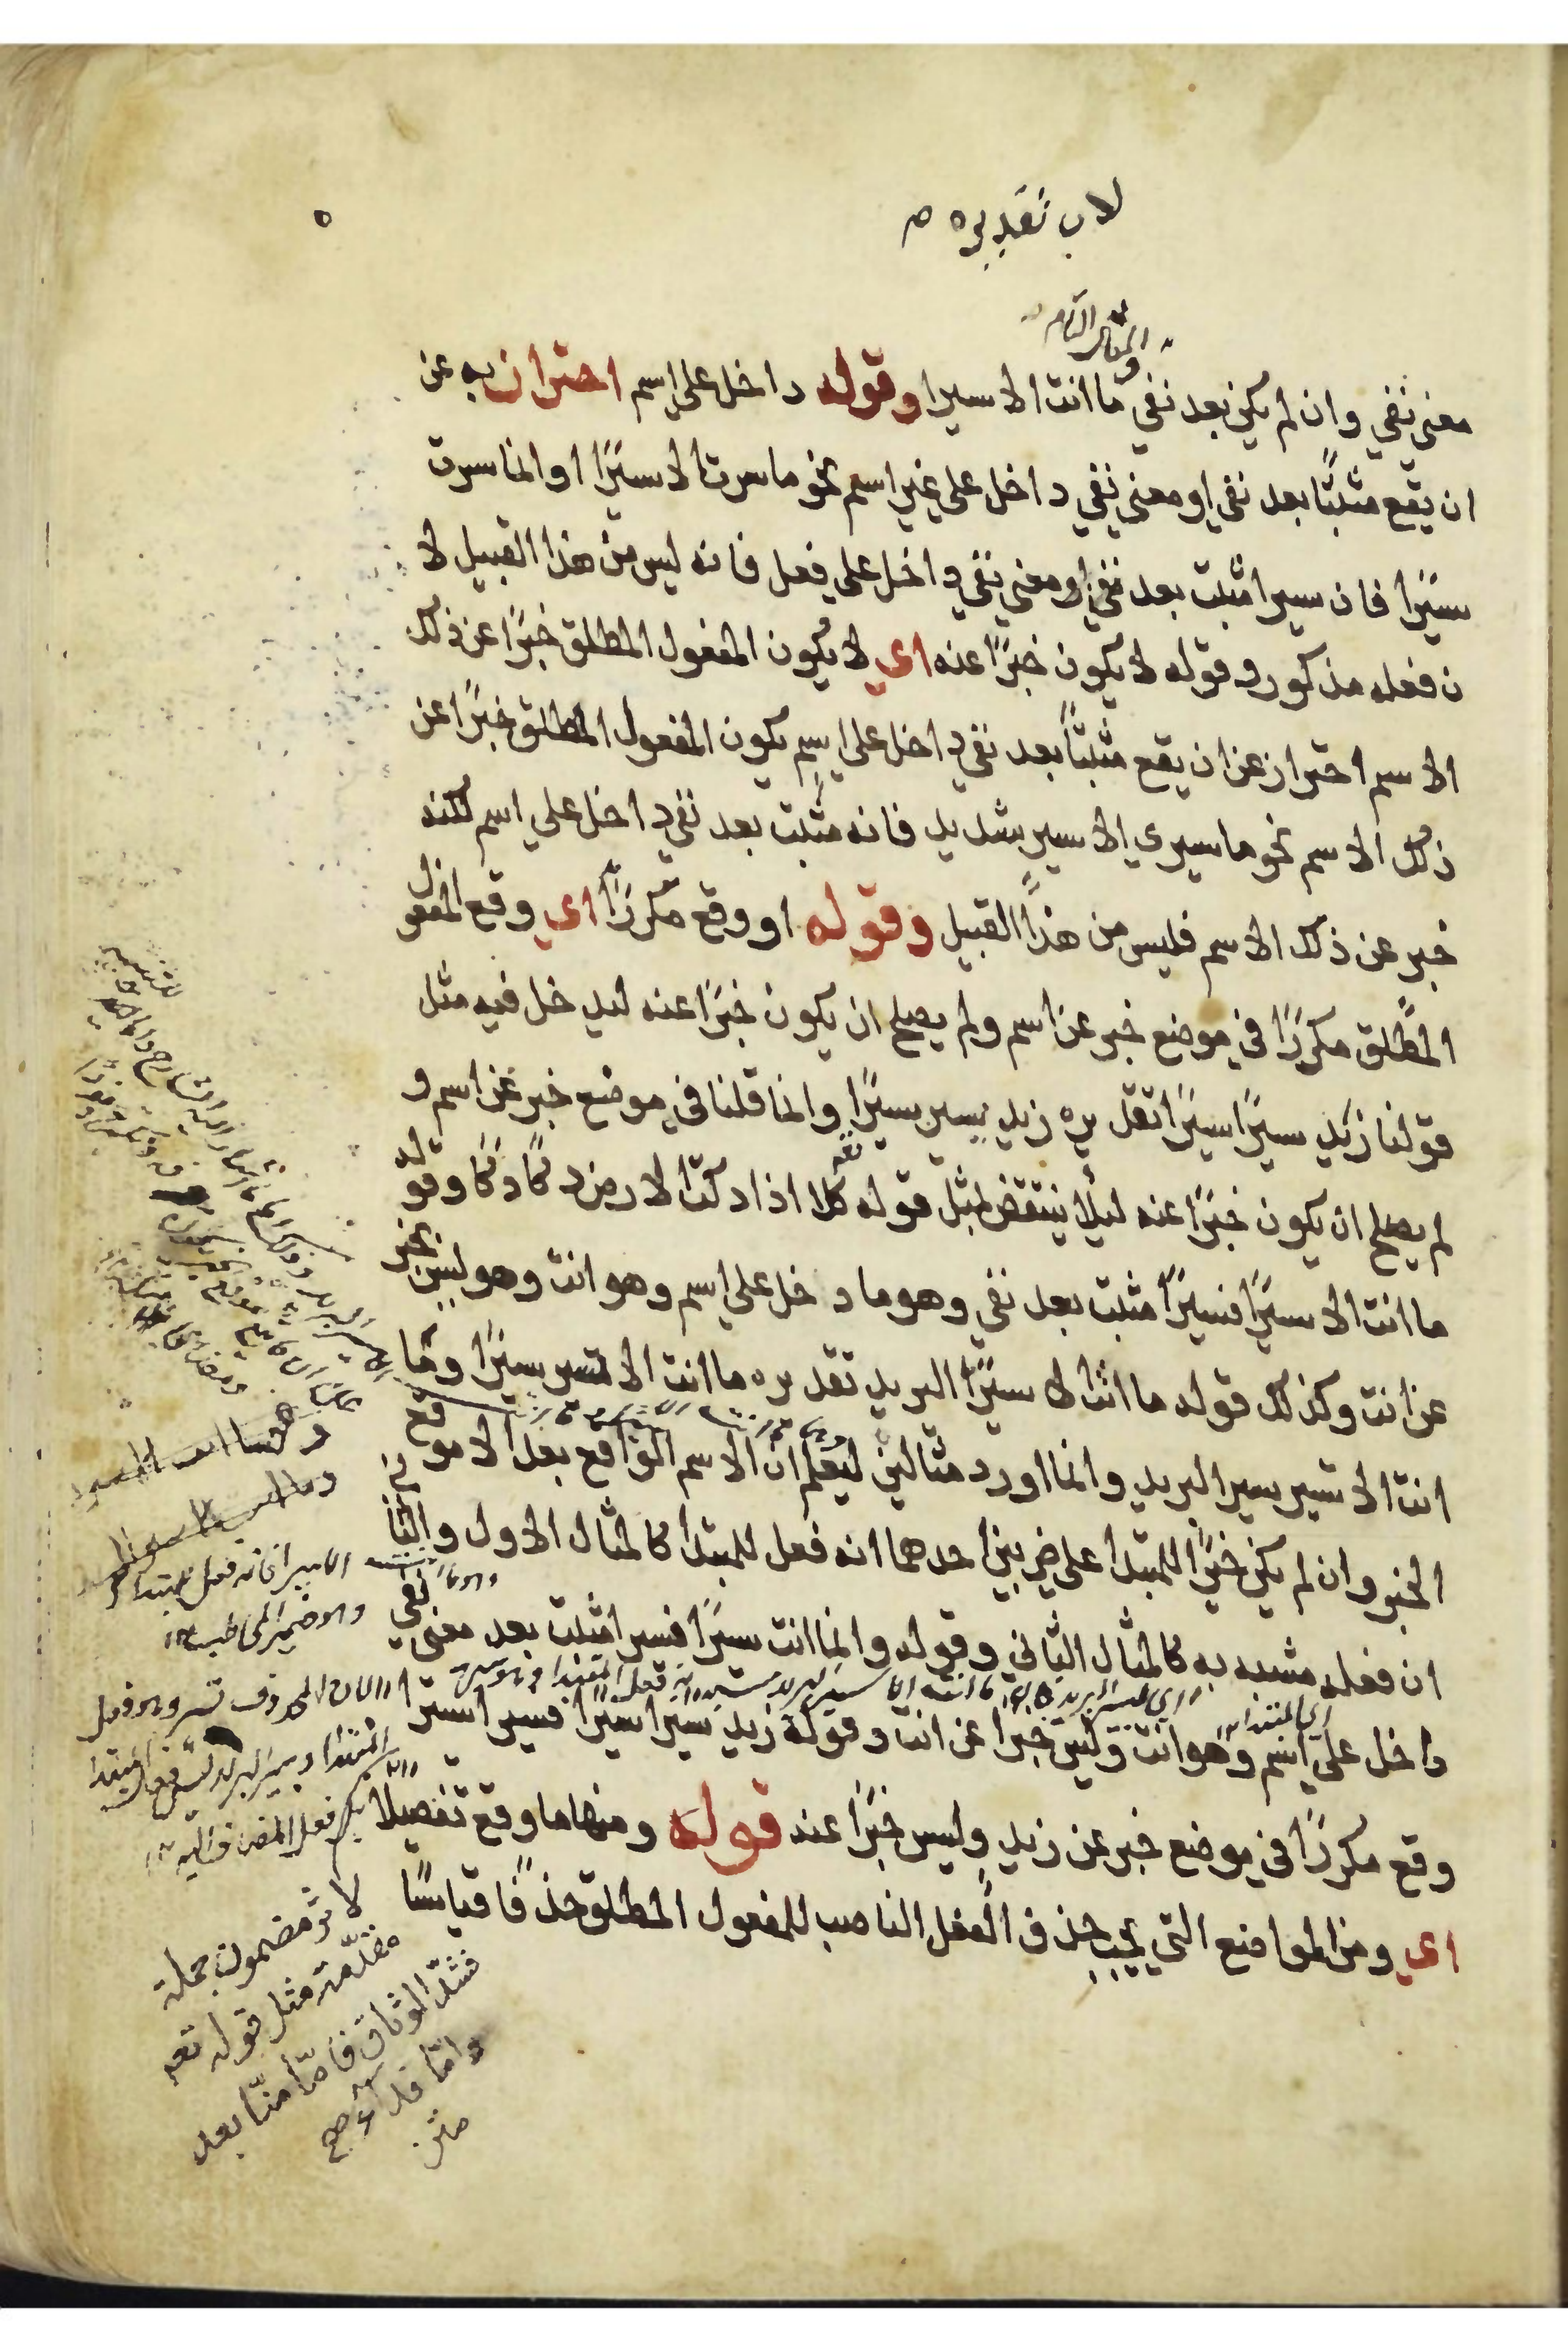 لان تقديره
والمثال التام
معني نفي وان لم يكن بعد نفي ما انت الا سيرا وقوله داخل علي اسم احتراز به عن
ان يقع مثبتًا بعد نفي او معني نفي داخل علي غير اسم نحو ما سرت الا سيرًا او انما سرت
سيرًا فان سيرا مثبت بعد نفي او معني نفي داخل علي فعل فانه ليس من هذا القبيل لا
ن فعله مذكور وقوله لا يكون خبرًا عنه اي لا يكون المفعول المطلق خبرًا عن ذلك
الاسم احتراز عن ان يقع مثبتًا بعد نفي داخل علي اسم يكون المفعول المطلق خبرًا عن
ذلك الاسم نحو ما سيري الا سير شديد فانه مثبت بعد نفي داخل علي اسم لكنه
خبر عن ذلك الاسم فليس من هذا القبيل وقوله او وقع مكررًا اي وقع المفعول
المطلق مكررًا في موضع خبر عن اسم ولم يصلح ان يكون خبرًا عنه ليدخل فيه مثل
قولنا زيد سيرًا سيرًا تقديره زيد يسير سيرًا وانما قلنا في موضع خبر عن اسم و
لم يصلح ان يكون خبرًا عنه ليلا ينتقض بمثل قوله تعه كلا اذا دكت الارض دكًا دكًا وقوله
ما انت الا سيرًا فسيرًا مثبت بعد نفي وهو ما دخل علي اسم وهو انت وهو ليس بخبر
عن انت وكذلك قوله ما انت الا سيرًا البريد تقديره ما انت الا تسير سيرًا وما
انت الا تسير سير البريد وانما اورد مثالين ليعلم ان الاسم الواقع بعد الا موقع
الخبر وان لم يكن خبرًا للمبتدا علي ضربين احدهما انه فعل للمبتدا كالمثال الاول والثاني
ان فعله مشبه به كالمثال الثاني وقوله وانما انت سيرًا فسيرا مثبت بعد معني نفي
داخل علي اسم وهو انت وليس خبرا عن انت وقوله زيد سيرًا سيرًا فسيرا سيرًا
وقع مكررًا في موضع خبر عن زيد وليس خبرًا عنه قوله ومنها ما وقع تفصيلًا
اي ومن المواضع التي يجب حذف الفعل الناصب للمفعول المطلق حذفًا قياسًا
الا سيرا فانه فعل المبتدا
وهو ضمير المخاطب
لان المحذوف تسير وهو فعل
المبتدا وسير البريد ليس فعل المبتدا
بل فعل المضاف اليه
لاثر مضمون جملة
مقدّمة مثل قوله تعه
فشدّوا الوثاق فامّا منّا بعد
وامّا فداء صح
متن